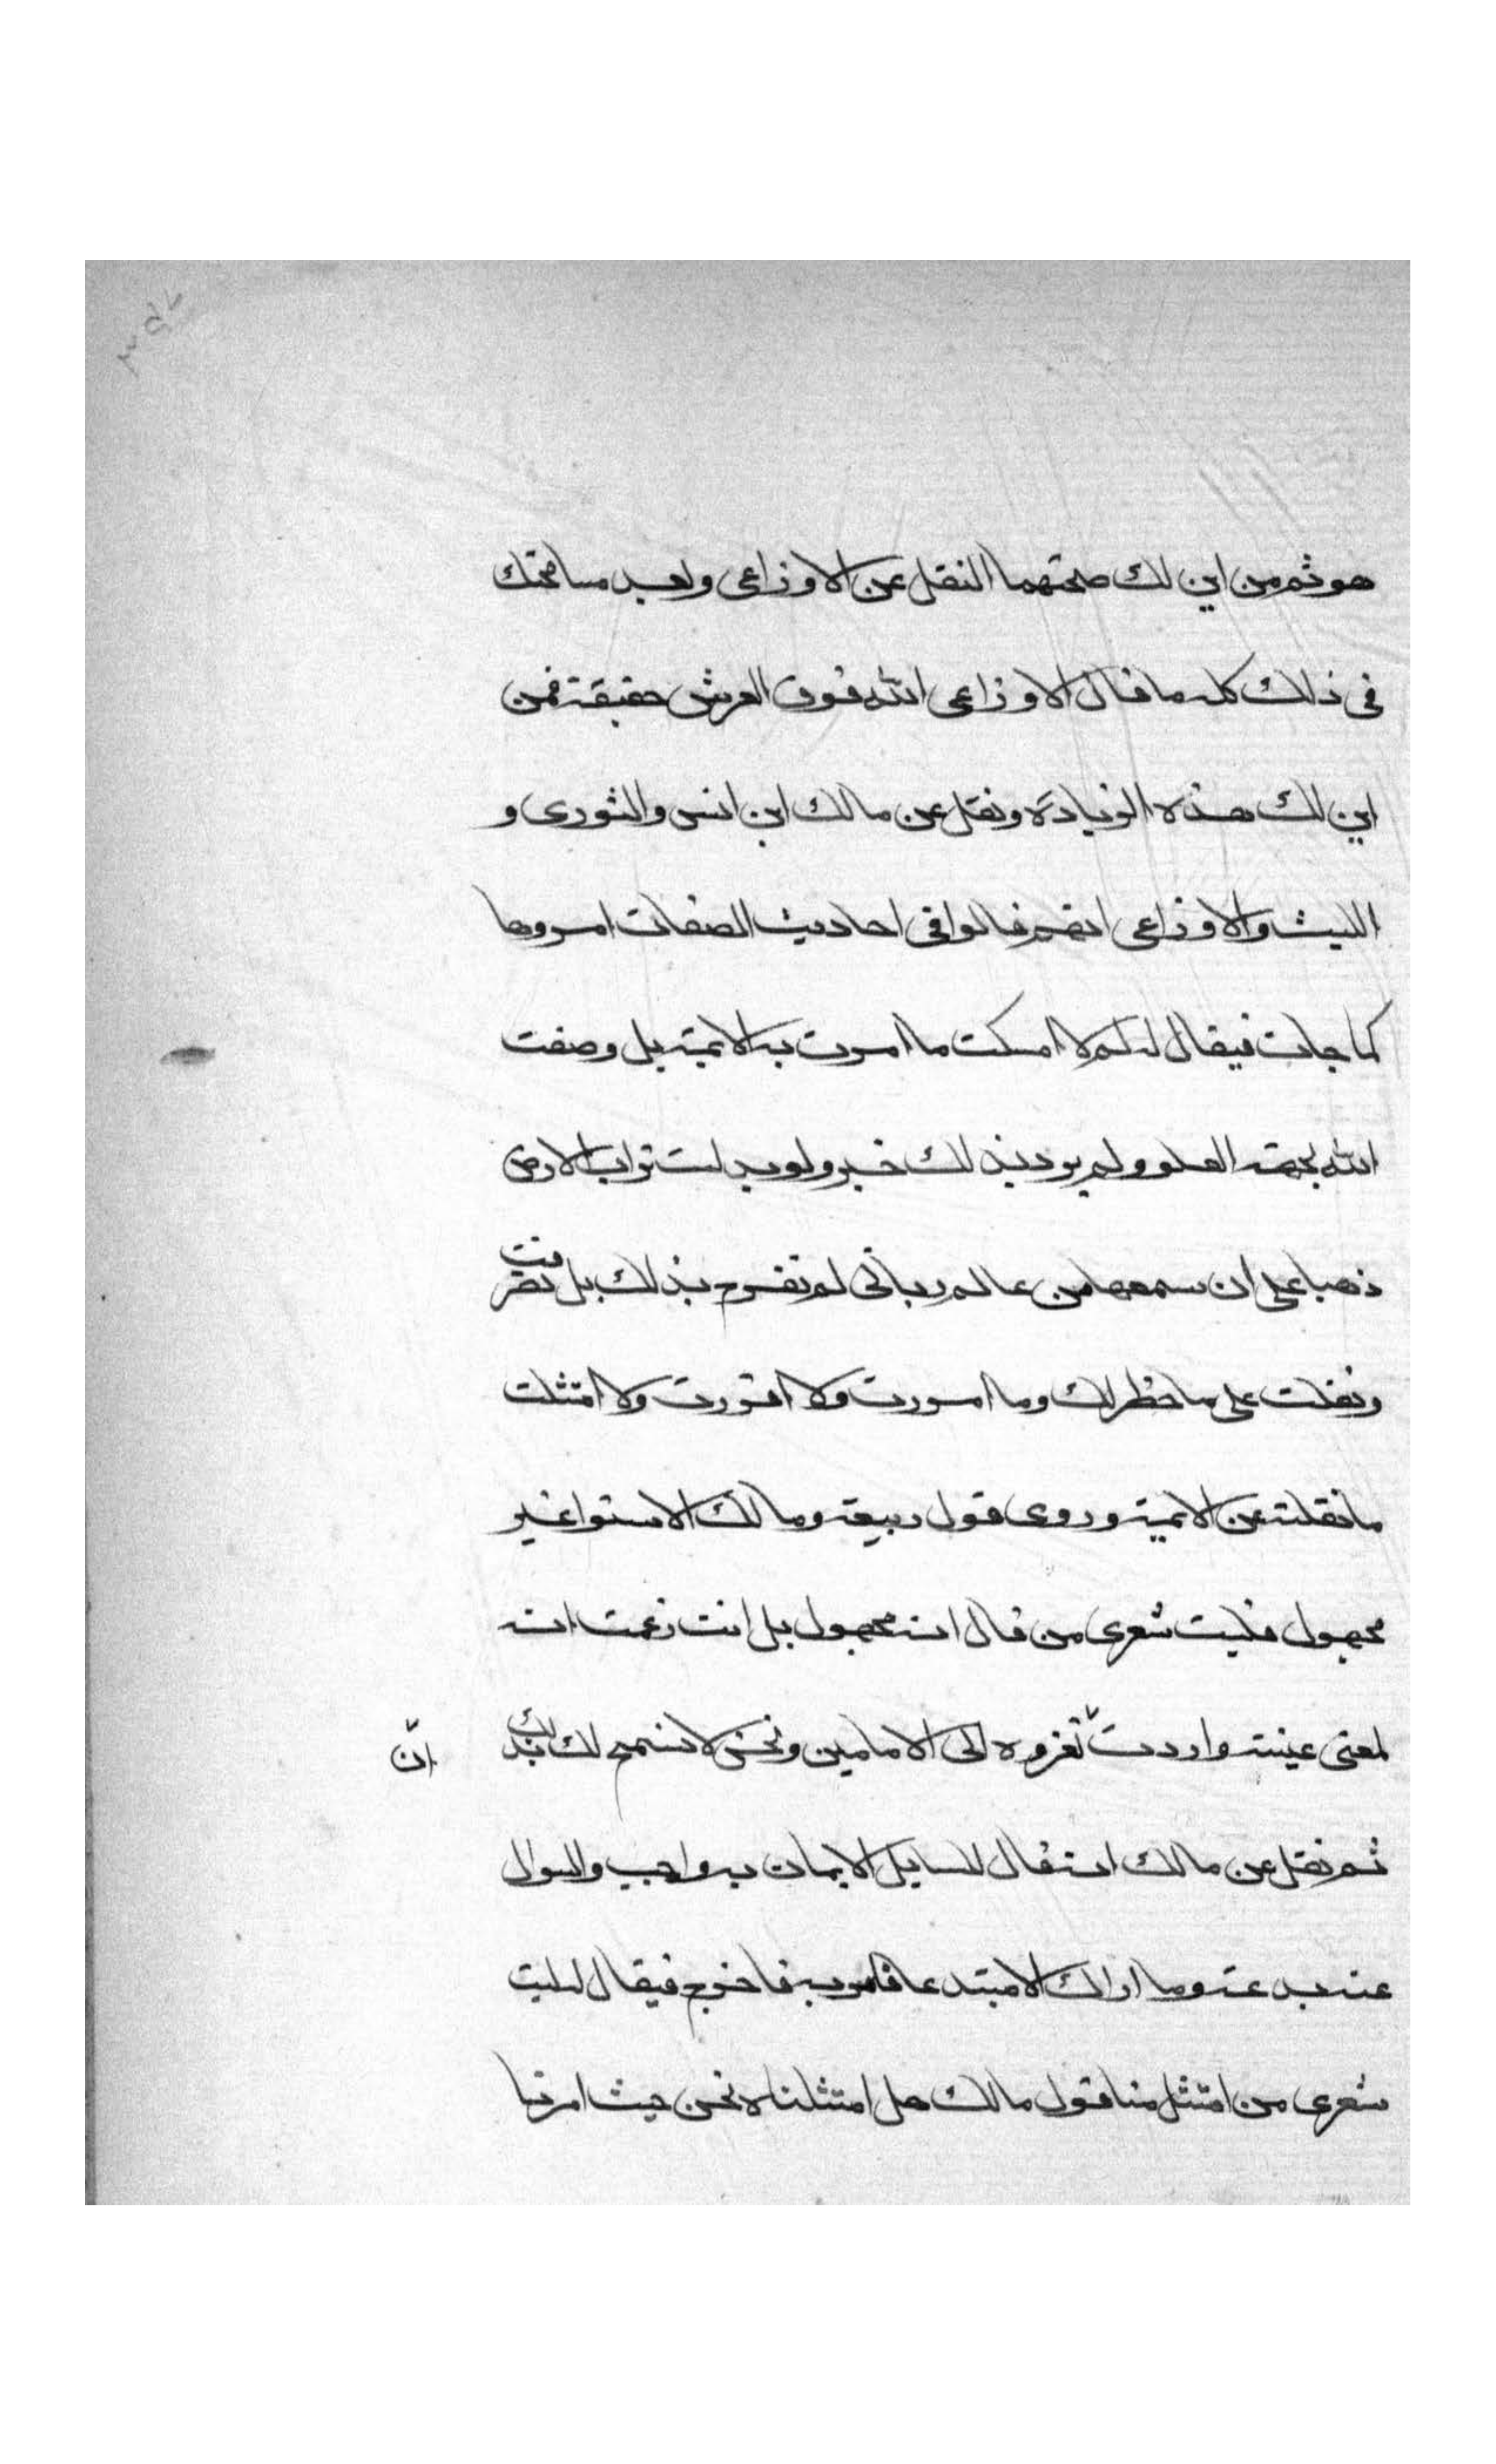 هو ثم من اين لك صحتهما النقل عن الاوزاعى وبعد مسامحتك
فى ذلك كله ما قال الاوزاعى الله فوق العرش حقيقة فمن
اين لك هذه الزيادة ونقل عن مالك ابن انس والثورى و
الليث والاوزاعى انهم قالوا فى احاديث الصفات امروها
كما جات فيقال له لم لا امسكت ما امرت به الايمة بل وصفت
الله بجهة العلو ولم يرد بذلك خبر ولو بدلت تراب الارض
ذهبا على ان سمعها من عالم ربانى لم تفرح بذلك بل تصرفت
ونقلت على ما خطر لك وما امررت ولا اقررت ولا امتثلت
ما نقلته عن الايمة وروى قول ربيعة ومالك الاستوا غير
مجهول فليت شعرى من قال انه مجهول بل انت زعمت انه
لمعنى عينته واردت ان تعزوه الى الامامين ونحن لا نسمح لك بذلك
ثم نقل عن مالك انه قال للسايل الايمان به واجب والسوال
عنه بدعة وما اراك الا مبتدعا فامر به فاخرج فيقال له ليت
شعرى من امتثل منا قول مالك هل امتثلناه نحن حيث امرنا